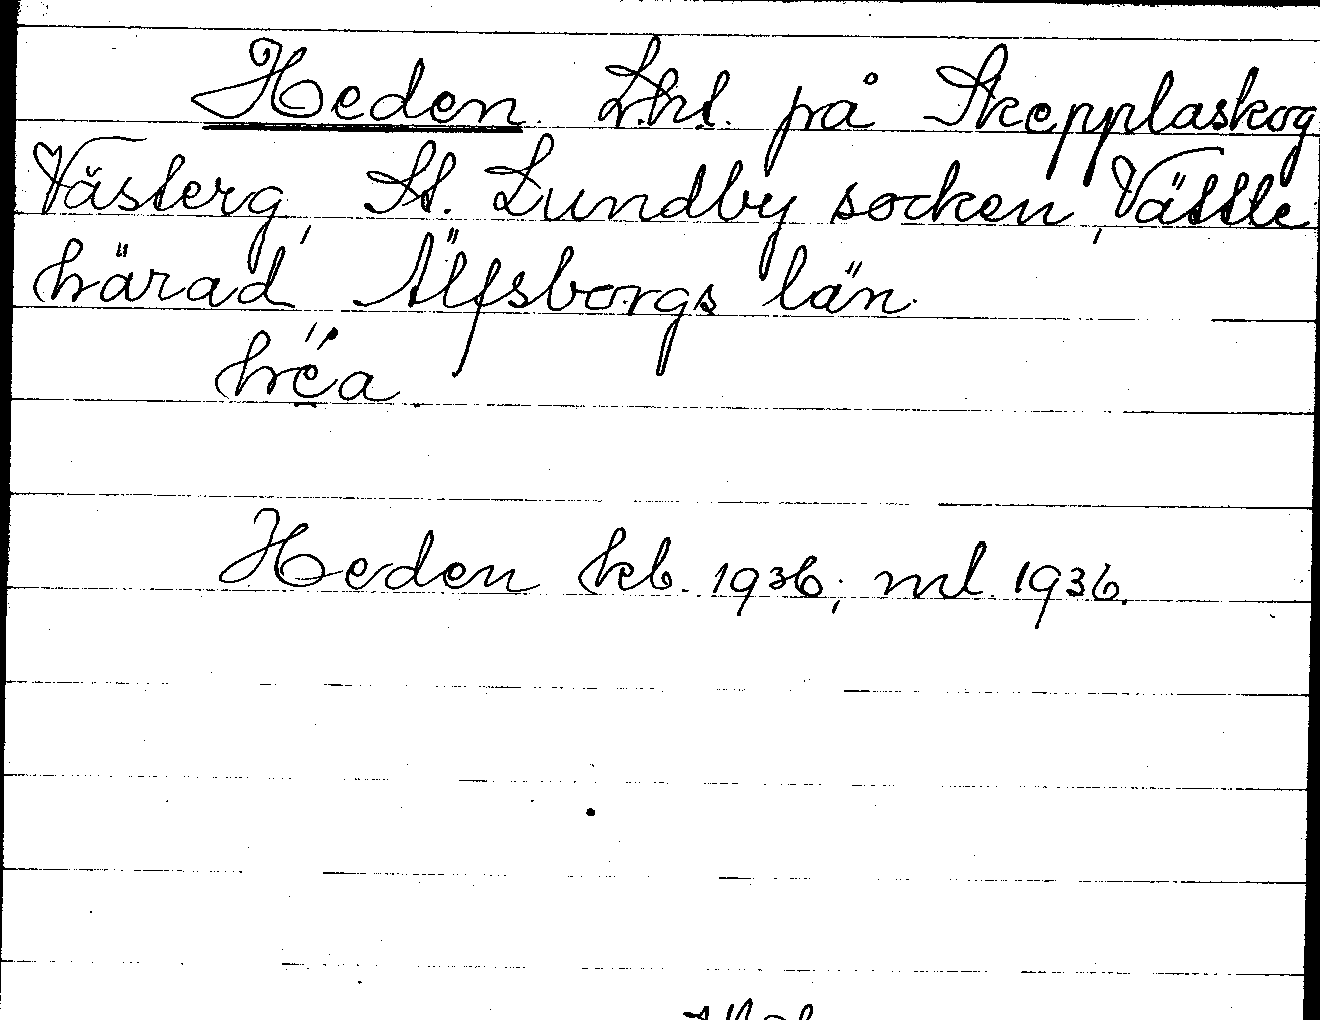 Heden. Lht. på Skepplaskog
Västerg, St. Lundby socken, Vättle
härad Älfsborgs län.
Heden kb. 1936; ml. 1936.